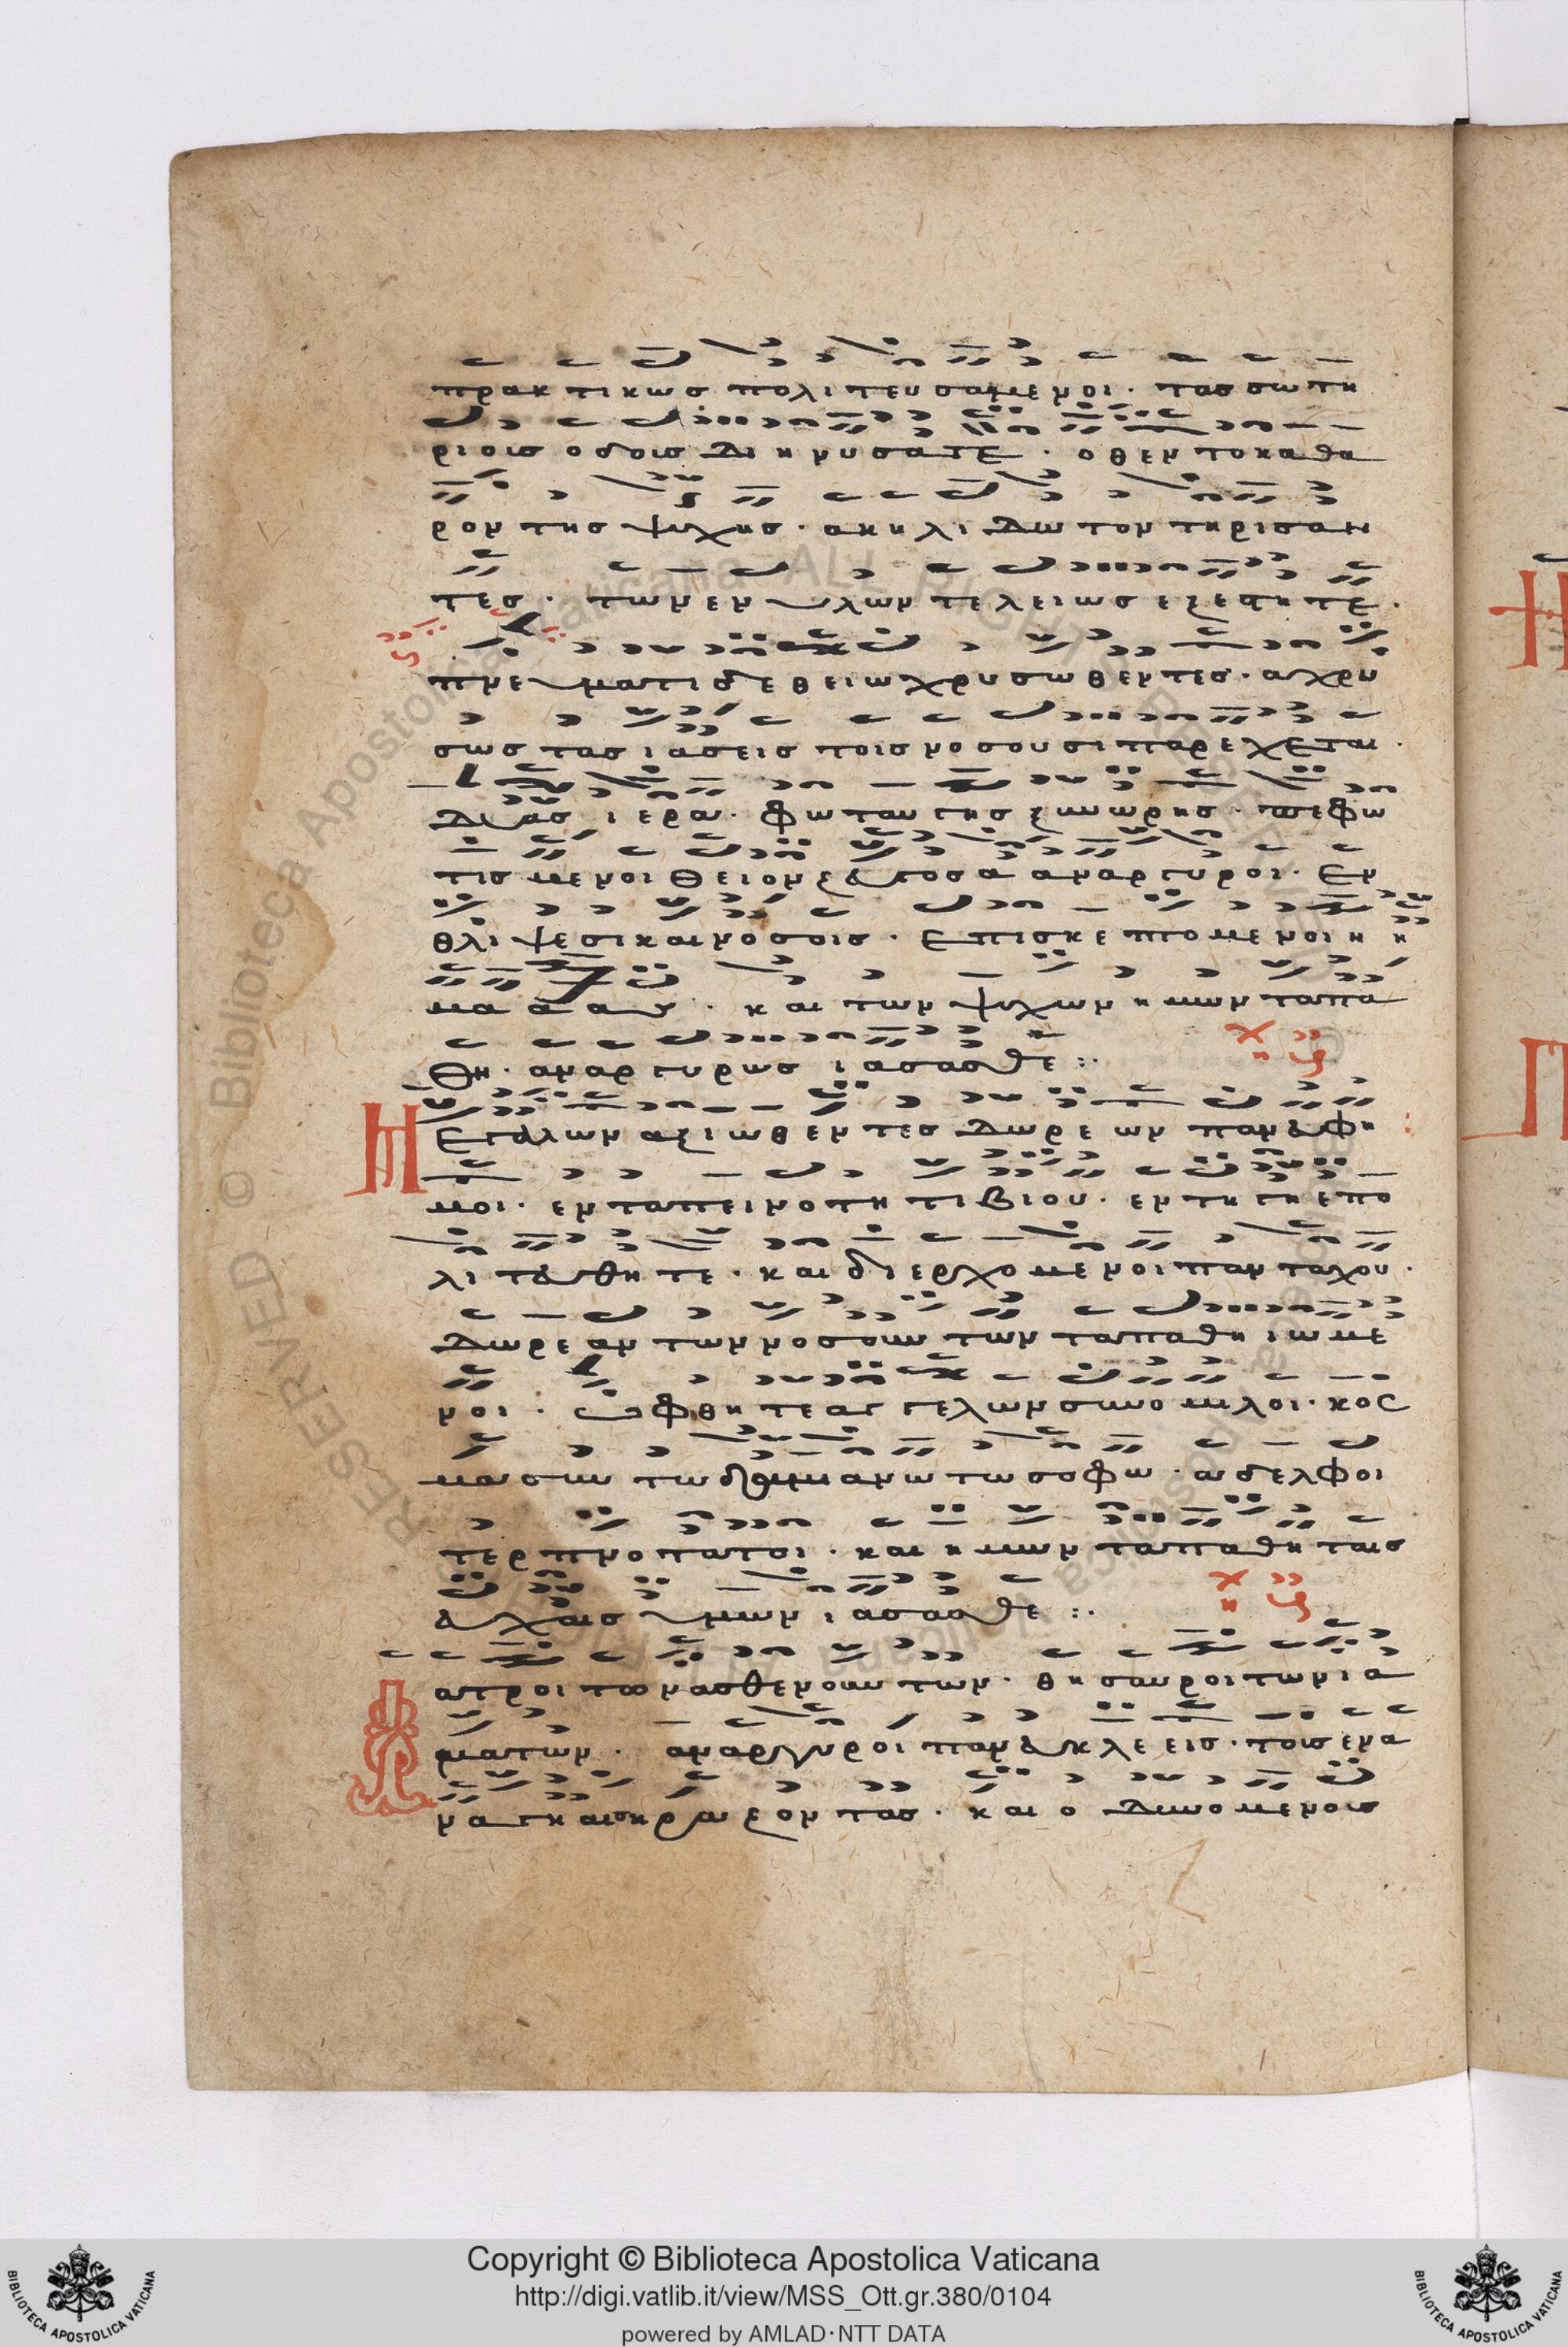 πρακτικωσ πολιτευσαμενοι · τασ σωτη
ριοισ οδοισ διηνυσατε · οθεν το καθα
ρον τησ ψυχησ · ακηλιδωτον τηρισαν
τεσ · των ενυλων τελειωσ εξεστητε ·
πνευματι δε θειω χρυσωθεντεσ · αχρυ
σωσ τασ ιασεισ τοισ νοσουσι παρεχεται ·
δυασ ιερα · φωταυγησ ξυνωρησ · πεφω
τισμενοι θειον ζευγοσ αναργυροι · εν
θλιψεσι και νοσοισ · επισκεπτομενοι η η
μα α α σ · και των ψυχων ημων τα πα
θη · αναργυρωσ ιασασθε :·
Μεγαλων αξιωθεντεσ δωρεων πανευφη
μοι · εν ταπεινοτητι βιου · εν τη γη επο
λιτευθητε · και διερχομενοι πανταχου ·
δωρεαν των νοσουντων τα παθη ιωμε
νοι · ωφθητε αγγελων συνομιλοι · κοσ
μα συν τω δαμιανω τω σοφω · αδελφοι
τερπνοτατοι · και ημων τα παθη ταισ
ευχαισ υμων ιασασθε :·
ατροι των ασθενουντων · θησαυροι των ια
ματων · αναργυροι πανευκλεεισ · τουσ εν α
ναγκαισ κραζοντασ · και οδυνομενουσ
Copyright © Biblioteca Apostolica Vaticana
http://digi.vatlib.it/view/MSS_Ott.gr.380/0104
powered by AMLAD·NTT DATA